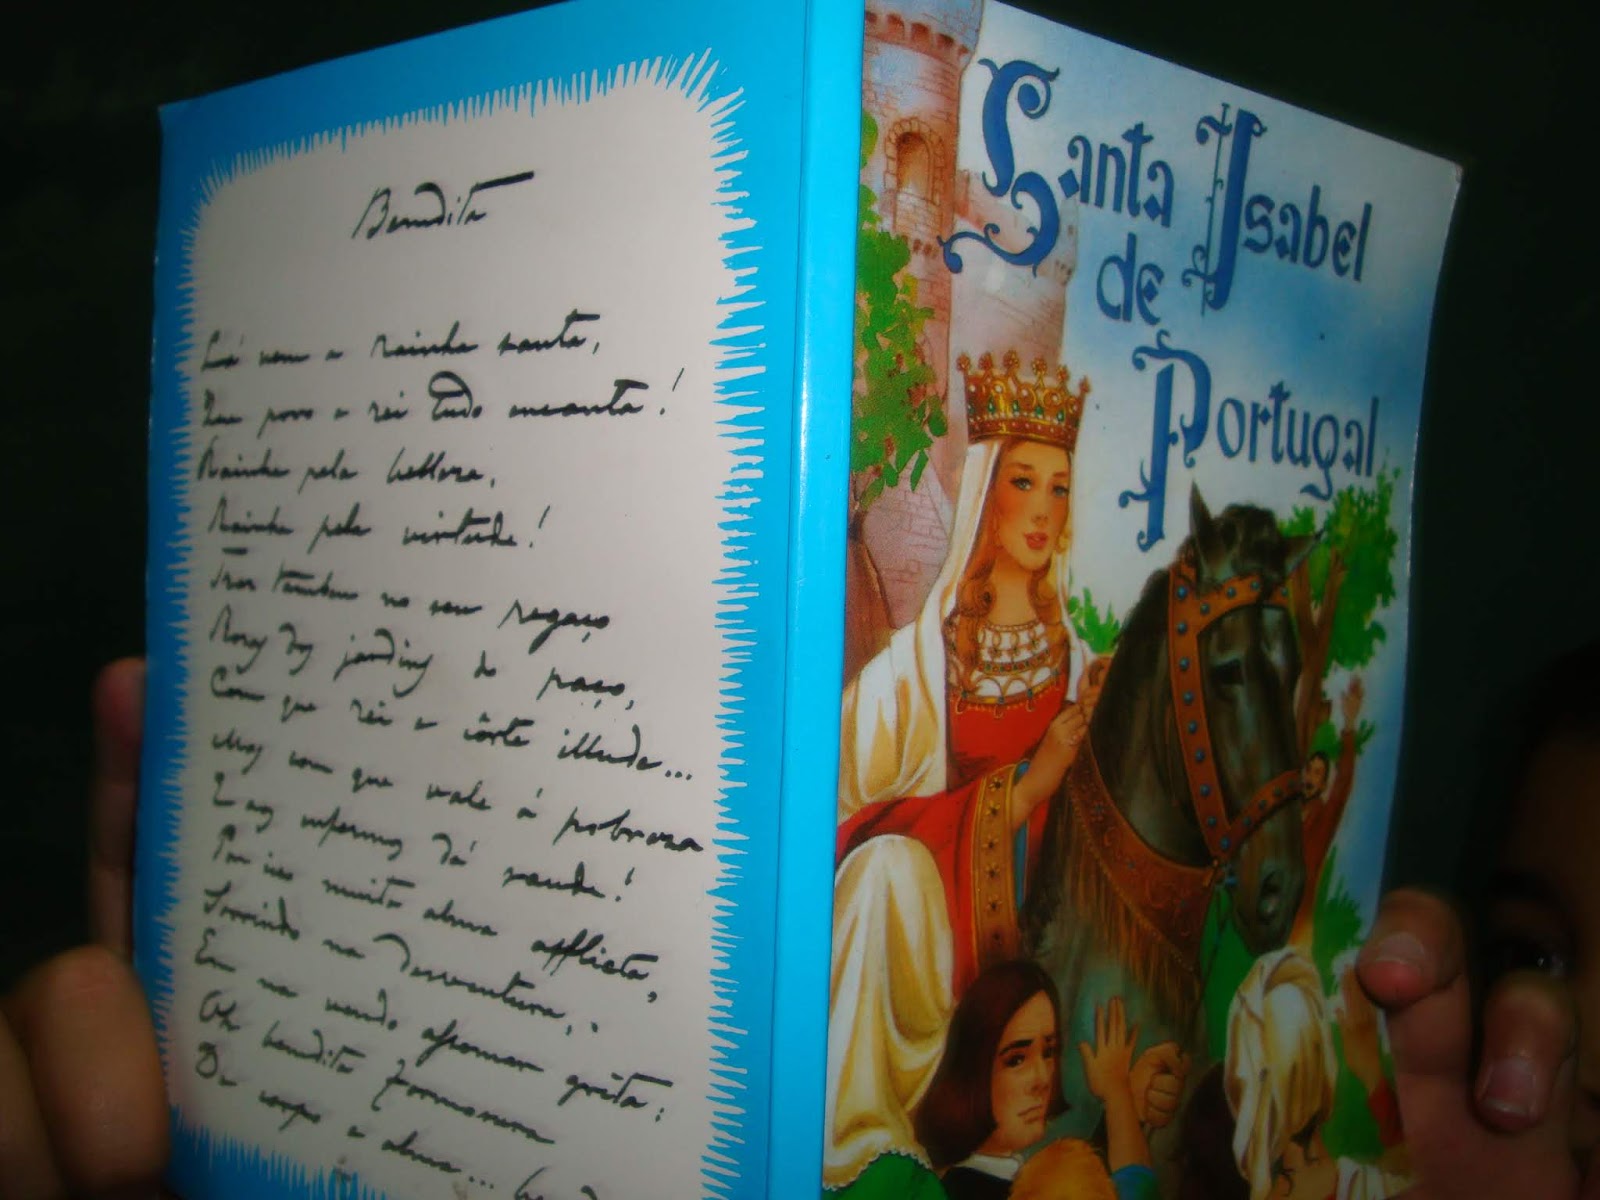 Bemdita
Lá vem a rainha santa,
Que povo e rei tudo encanta!
Rainha pela belleza,
Rainha pela virtude!
Traz tambem no seu regaço
Rosas dos jardins do paço,
Com que rei e côrte illude...
Mas com que vale á pobreza
E aos enfermos dá saude!
Por isso muita alma afflicta,
Sorrindo na desventura,
Em na vendo assomar grita:
Oh bemdita formosura
De corpo e alma...
Santa Isabel
de
Portugal